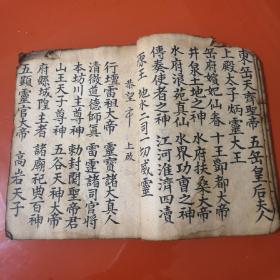 東岳天齊聖帝 五岳皇后夫人
上殿太子炳靈大王
岳府嬪妃仙眷 十王酆都大帝
井泉土地之神 水府扶桑大帝
水府浪苑真仙 水界功曹之神
傳奏使者之神 江河淮濟四瀆
地水二司一切威靈
恭望 上啟
行壇雷祖大帝 靈寶諸大真人
清微道德師真 雷霆諸司官將
本坊川主尊神 勅封関聖帝君
山王天子尊神 五谷天神大帝
府縣城隍主者 諸廟祀典百神
五顯靈官大帝 高岩天子